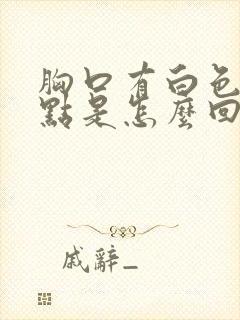 胸口有白色
點是怎麼回
戚辭_